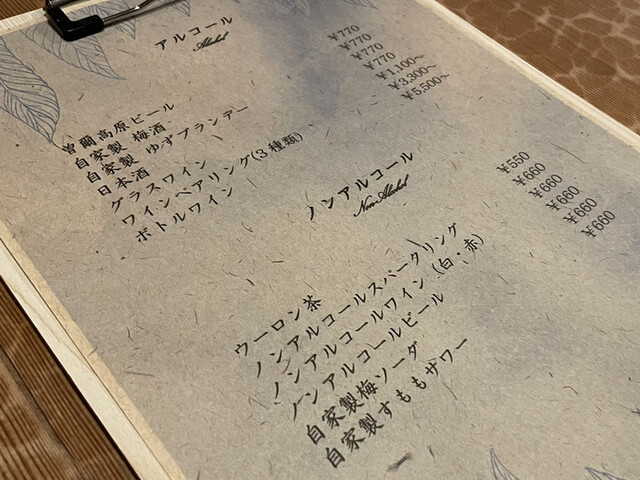 アルコール
Alcohol
曽爾高原ビール ¥770
自家製 梅酒 ¥770
自家製 ゆずブランデー ¥770
日本酒 ¥770
グラスワイン ¥1,100～
ワインペアリング(3種類) ¥3,300～
ボトルワイン ¥5,500～
ノンアルコール
Non Alcohol
ウーロン茶 ¥550
ノンアルコールスパークリング ¥660
ノンアルコールワイン (白・赤) ¥660
ノンアルコールビール ¥660
自家製梅ソーダ ¥660
自家製すももサワー ¥660